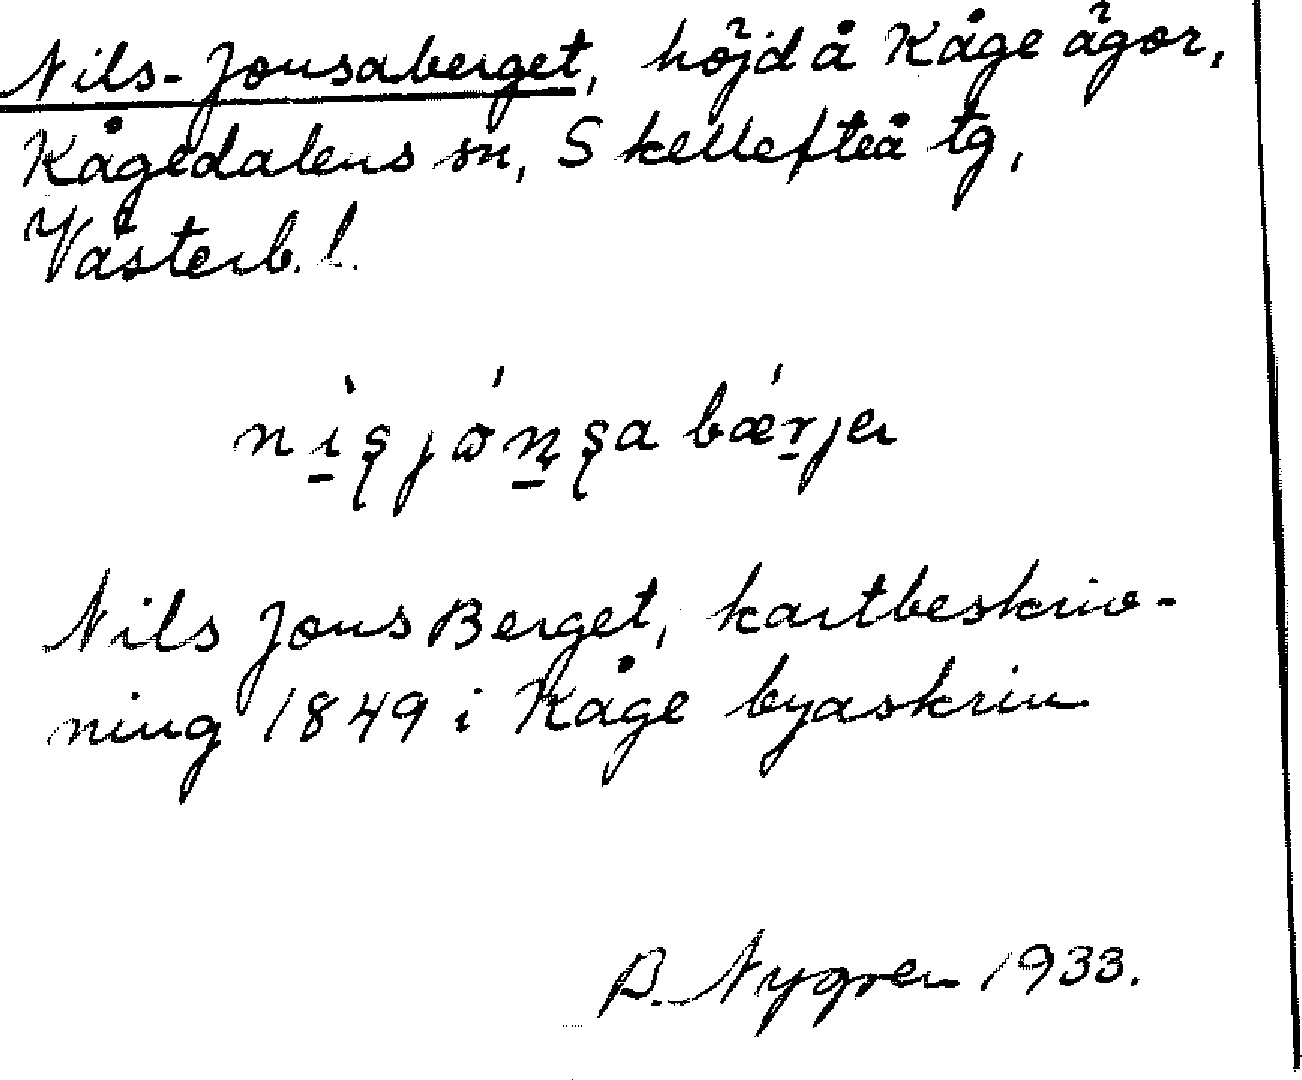 Nils-Jonsaberget, höjd å Kåge ägor,
Kågedalens sn, Skellefteå tg,
Västerb. l.
nìʂjónʂa bǽrjer
Nils Jons Berget, kartbeskriv-
ning 1849 i Kåge byaskrin
B. Nygren 1933.